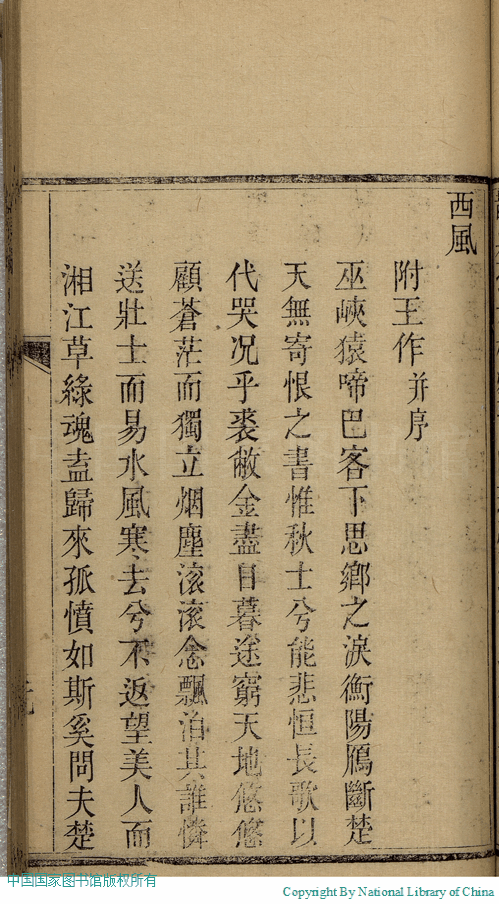 西風
附王作并序
巫峽猿啼巴客下思鄉之淚衡陽鴈斷楚
天無寄恨之書惟秋士兮能悲恒長歌以
代哭况乎裘敝金盡日暮途窮天地悠悠
顧蒼茫而獨立烟塵滚滚念飄泊其誰憐
送壯士而易水風寒去兮不返望美人而
湘江草綠魂盍歸來孤憤如斯奚問夫楚
中国国家图书馆版权所有
Copyright By National Library of China